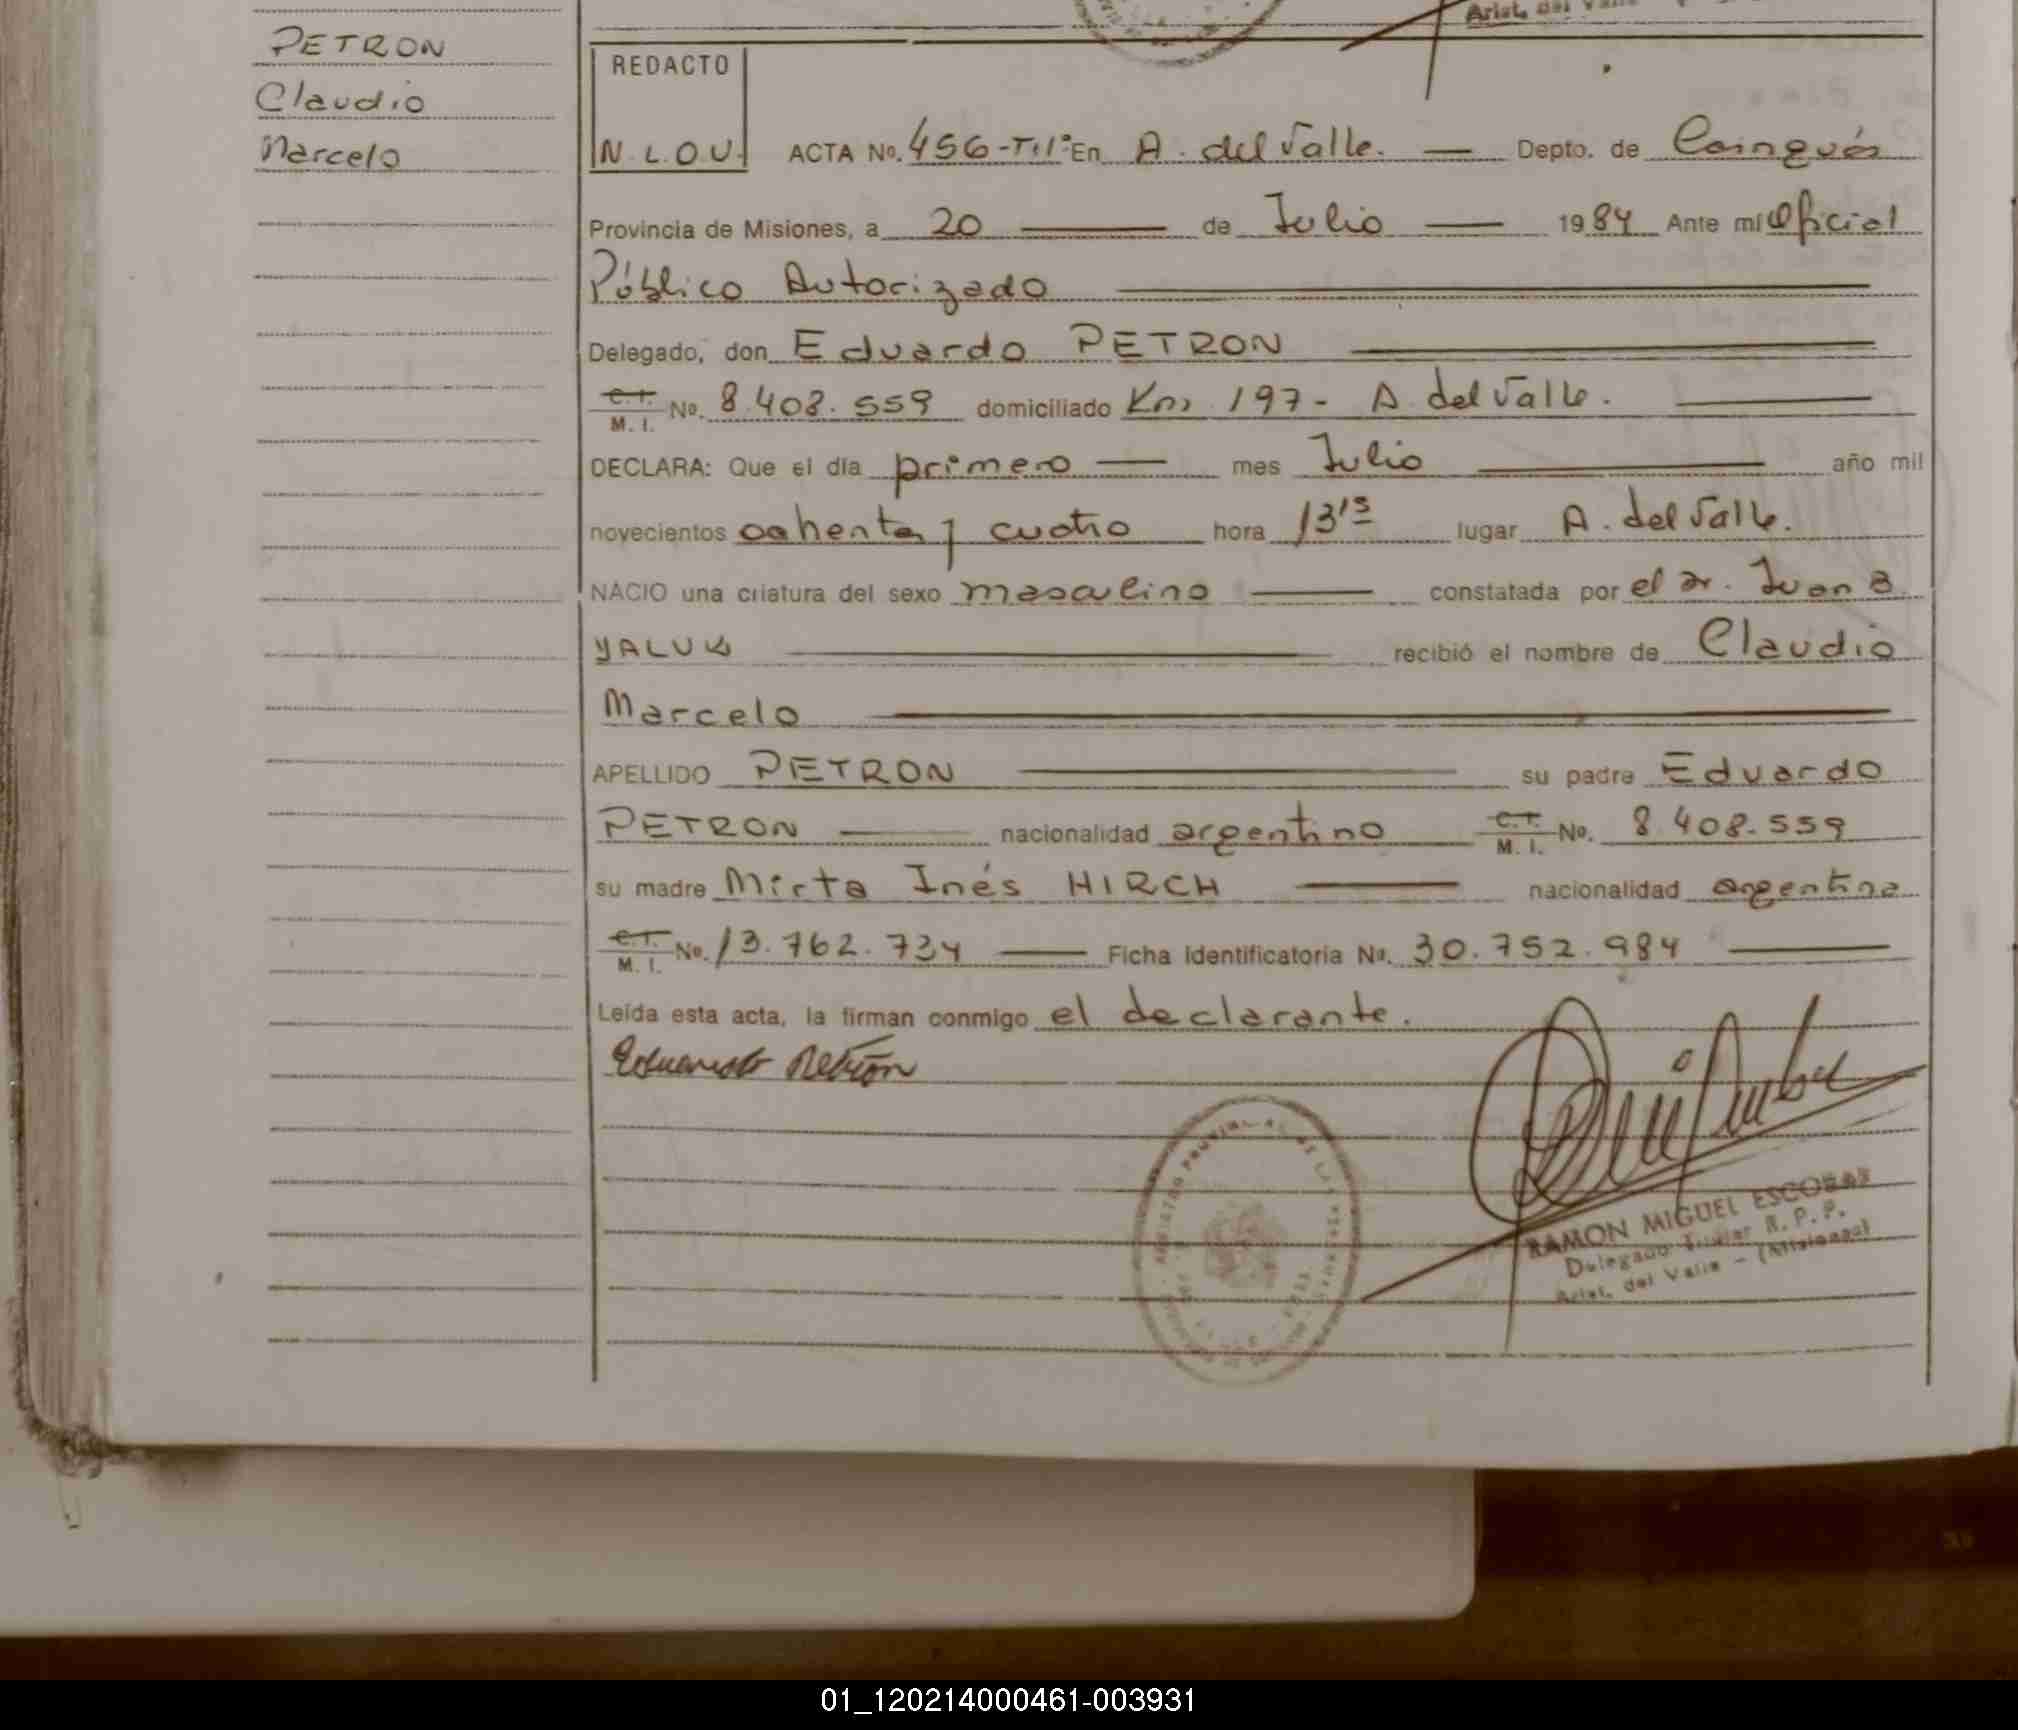 PETRON
Claudio
Marcelo
Arist. del Valle
REDACTO
N.L.O.U.
ACTA No. 456-T:1º En A. del Valle. — Depto. de Cainguás
Provincia de Misiones, a 20 — de Julio — 1984 Ante mí Oficial
Público Autorizado
Delegado, don Eduardo PETRON
C.I. M. I. No. 8.408.559 domiciliado Km 197- A del Valle.
DECLARA: Que el día primero — mes Julio — año mil
novecientos ochenta y cuatro hora 13¹⁵ lugar A. del Valle.
NACIO una criatura del sexo masculino — constatada por el Dr. Juan B.
YALUK — recibió el nombre de Claudio
Marcelo
APELLIDO PETRON — su padre Eduardo
PETRON — nacionalidad argentino C.I. M. I. No. 8.408.559
su madre Mirta Inés HIRCH — nacionalidad argentina
C.I. M. I. No. 13.762.734 — Ficha Identificatoria No. 30.752.984
Leída esta acta, la firman conmigo el declarante.
Eduardo Petron
RAMON MIGUEL ESCOBAR
Delegado Titular R. P. P.
Arist. del Valle - (Misiones)
01_120214000461-003931